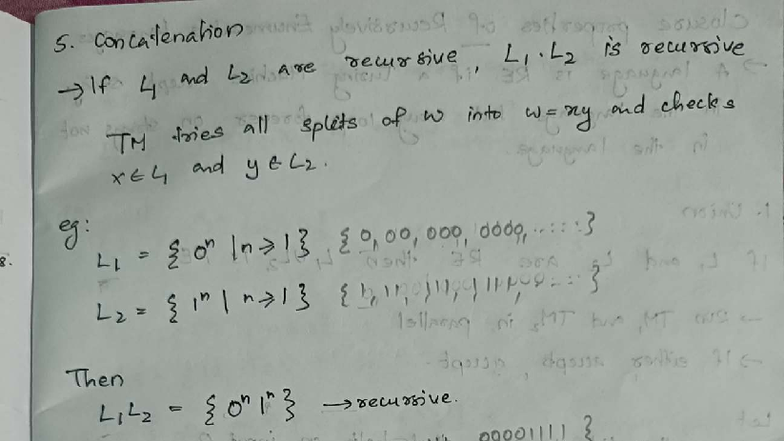 5. Concatenation
→ If L1 and L2 are recursive, L1.L2 is recursive
TM tries all splits of w into w = xy and checks
x ∈ L1 and y ∈ L2.
eg:
L1 = { 0ⁿ | n ≥ 1 } { 0, 00, 000, 0000, ..... }
L2 = { 1ⁿ | n ≥ 1 } { 1, 11, 111, 1111, ..... }
Then
L1L2 = { 0ⁿ 1ⁿ } → recursive.
00001111 }
8.